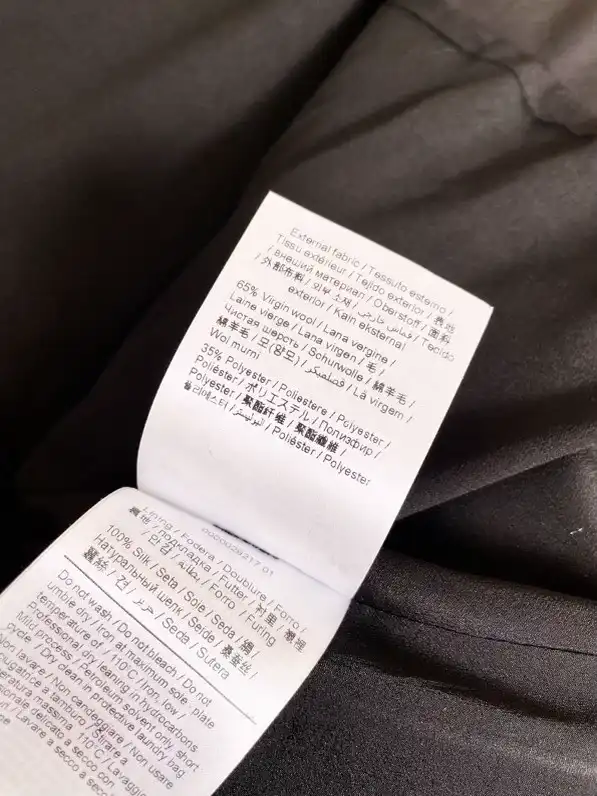 External fabric / Tessuto esterno /
Tissu extérieur / Tejido exterior / 表地
/ внешний материал / Oberstoff / 面料
/ 外部布料 / 외부 소재 / قماش خارجي / Tecido
exterior / Kain eksternal
65% Virgin wool / Lana vergine /
Laine vierge / Lana virgen / 毛 /
Чистая шерсть / Schurwolle / 綿羊毛 /
綿羊毛 / 모(양모) / / Lã virgem /
Wol murni
35% Polyester / Poliestere / Polyester /
Poliéster / ポリエステル / Полиэфир /
Polyester / 聚酯纤维 / 聚酯纖維 /
폴리에스터 / / Poliéster / Polyester
0000029217 01
Lining / Fodera / Doublure / Forro /
裏地 / подкладка / Futter / 衬里 / 襯裡
/ 안감 / بطانة / Forro / Furing
100% Silk / Seta / Soie / Seda / 絹 /
Натуральный шелк / Seide / 桑蚕丝 /
蠶絲 / 견 / حرير / Seda / Sutera
Do not wash / Do not bleach / Do not
tumble dry / Iron at maximum sole plate
temperature of 110°C / Iron, low /
Professional dry cleaning in hydrocarbons
Mild process / Petroleum solvent only, short
cycle / Dry clean in protective laundry bag
Non lavare / Non candeggiare / Non usare
asciugatrice a tamburo / Stirare a
temperatura massima 110°C / Lavaggio
professionale delicato a secco con
/ Lavare a secco
a secco a